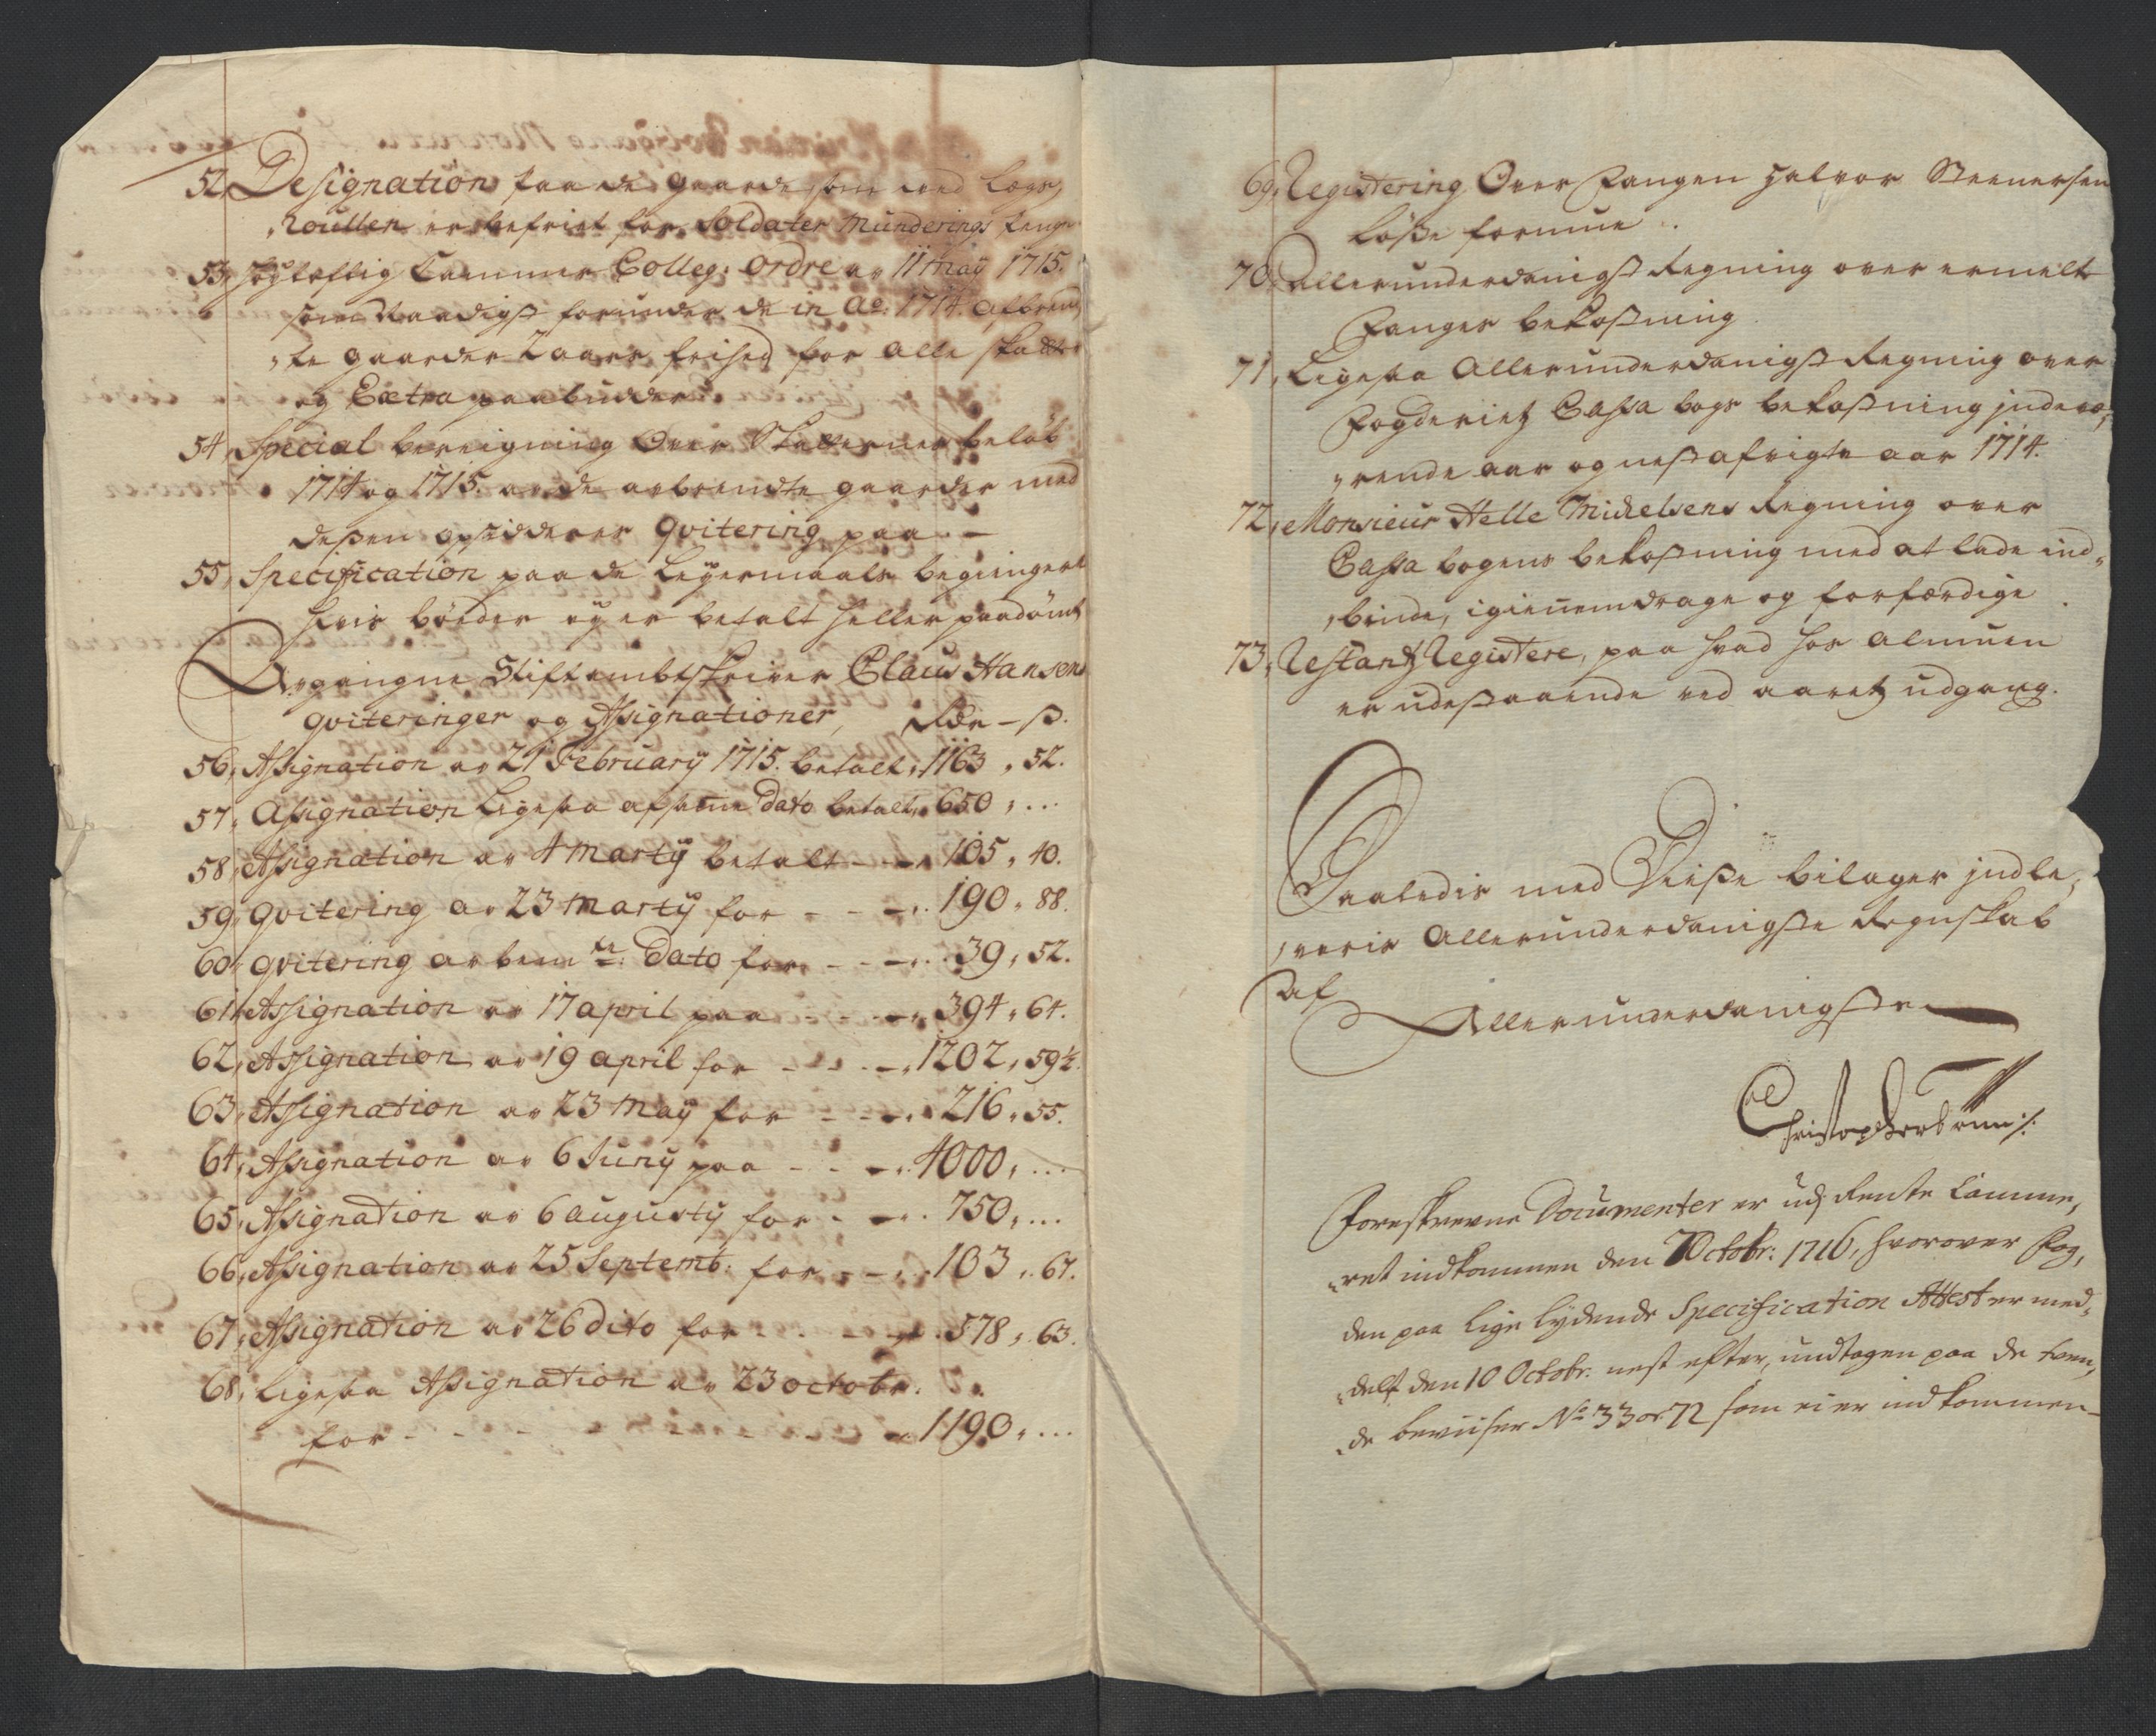 52, Designation paa de gaarde som ved Legs,
,Roullen er befriet for Soldater Munderings penge
53, Høylofflig Cammer Colleg: Ordre av 11 may 1715.
som Naadigst forunder de in Ao: 1714. afbrend,
,te gaarder 2 aars frihed for alle skatter
og Extra paabuder
54, Special beregning Over Skatternes beløb
1714 og 1715. av de avbrendte gaarder med
deßen opsidderes qvitering paa -
55, Specification paa de Leyermaals begiengere
hvis bøeder ey er betalt heller paadømt
Afgangne Stiftambtskriver Claus Hansens
qviteringer og Assignationer, Rdr - ß.
56, Assignation av 21 February 1715. betalt, 1163, 52.
57, Assignation Ligesaa af samme Dato betalt, 650, ...
58, Assignation av 4 marty betalt - - 105, 40.
59, qvitering av 23 marty for - - - 190, 88.
60, qvitering av bem.te Dato for - - - 39, 52.
61, Assignation av 17 april paa - - - 394, 64.
62, Assignation av 19 april for - - - 1202, 59½.
63, Assignation av 23 may for - - - 216, 55.
64, Assignation av 6 Juny paa - - - 4000, ...
65, Assignation av 6 augusty for - - 750, ...
66, Assignation av 25 Septemb: for - - 103, 67.
67, Assignation av 26 dito for - - - 578, 63.
68, Ligesaa Assignation av 23 octobr:
for - - - - - - - 1190, ...
69, Registering Over Fangen Halvor Steenersens
Løße formue.
70, Allerunderdanigst Regning over ermelte
Fanges bekostning
71, Ligesaa Allerunderdanigst Regning over
Fogderietz Cassa bogs bekostning indevæ,
,rende aar og nest afvigte aar 1714.
72, Monsieur Helle Michelsens Regning over
Cassa bogens bekostning med at lade ind,
,binde, igiennemdrage og forfærdige
73, Restantz Registere, paa hvad hos almuen
er udestaaende ved aaretz udgang.
Saaledis med Diße bilager indle,
,veris Allerunderdanigste Regnskab
af
Allerunderdanigste
Foreskrevne Documenter er udj Rente Camme,
,ret indkommen den 7 Octobr: 1716, hvorover Fog,
den paa lige lydende Specification Attest er med,
,delt den 10 Octobr. nest efter, undtagen paa de tven,
,de beviiser No 33 og 72 som ei er indkommen -